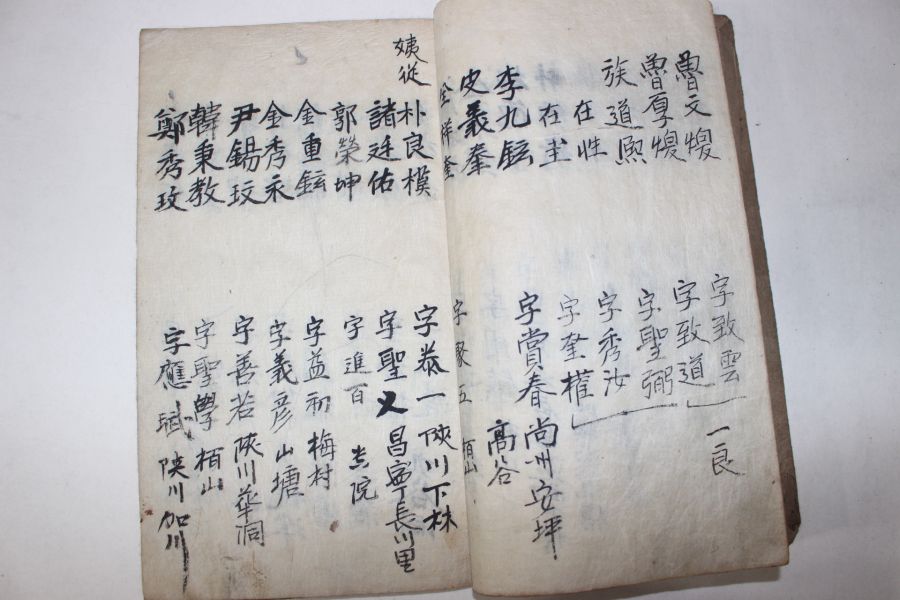 曺文煥 字致雲 一良
曺厚煥 字致道
族道熙 字聖弼
在性 字秀汝
在圭 字奎權
李九鉉 字賞春 尙州安坪
史義奉 高谷
金祥奎 字聚五 栢山
姨從朴良模 字泰一 陜川下林
諸廷佑 字聖义 昌寧長川里
郭榮坤 字進百 院
金重鉉 字益初 梅村
金秀永 字義彦 山塘
尹錫玟 字善若 陜川華洞
韓秉敎 字聖學 栢山
鄭秀玟 字應斌 陜川加川